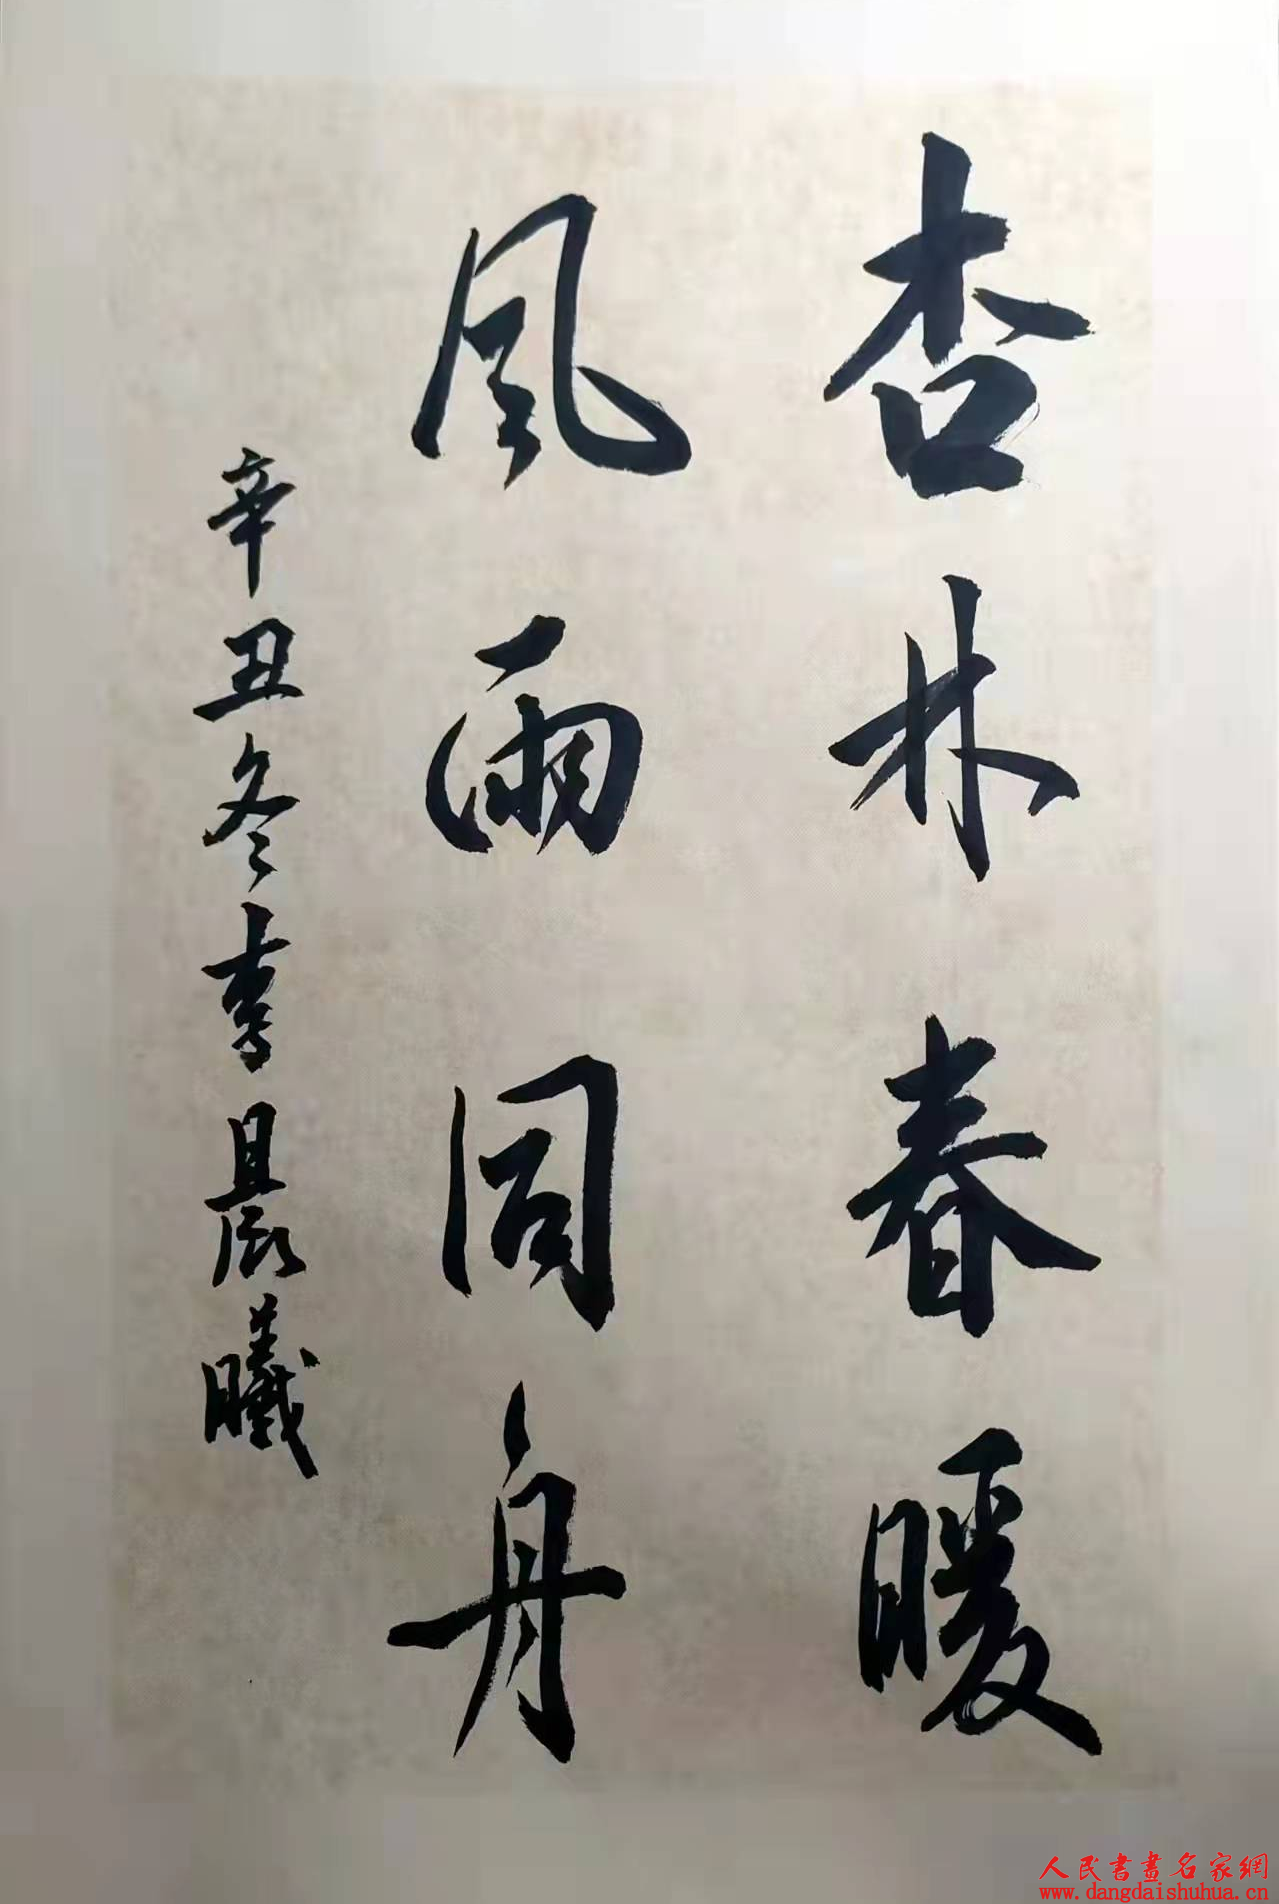 杏林春暖
風雨同舟
辛丑冬李晨曦
人民書畫名家網
www.dangdaishuhua.cn